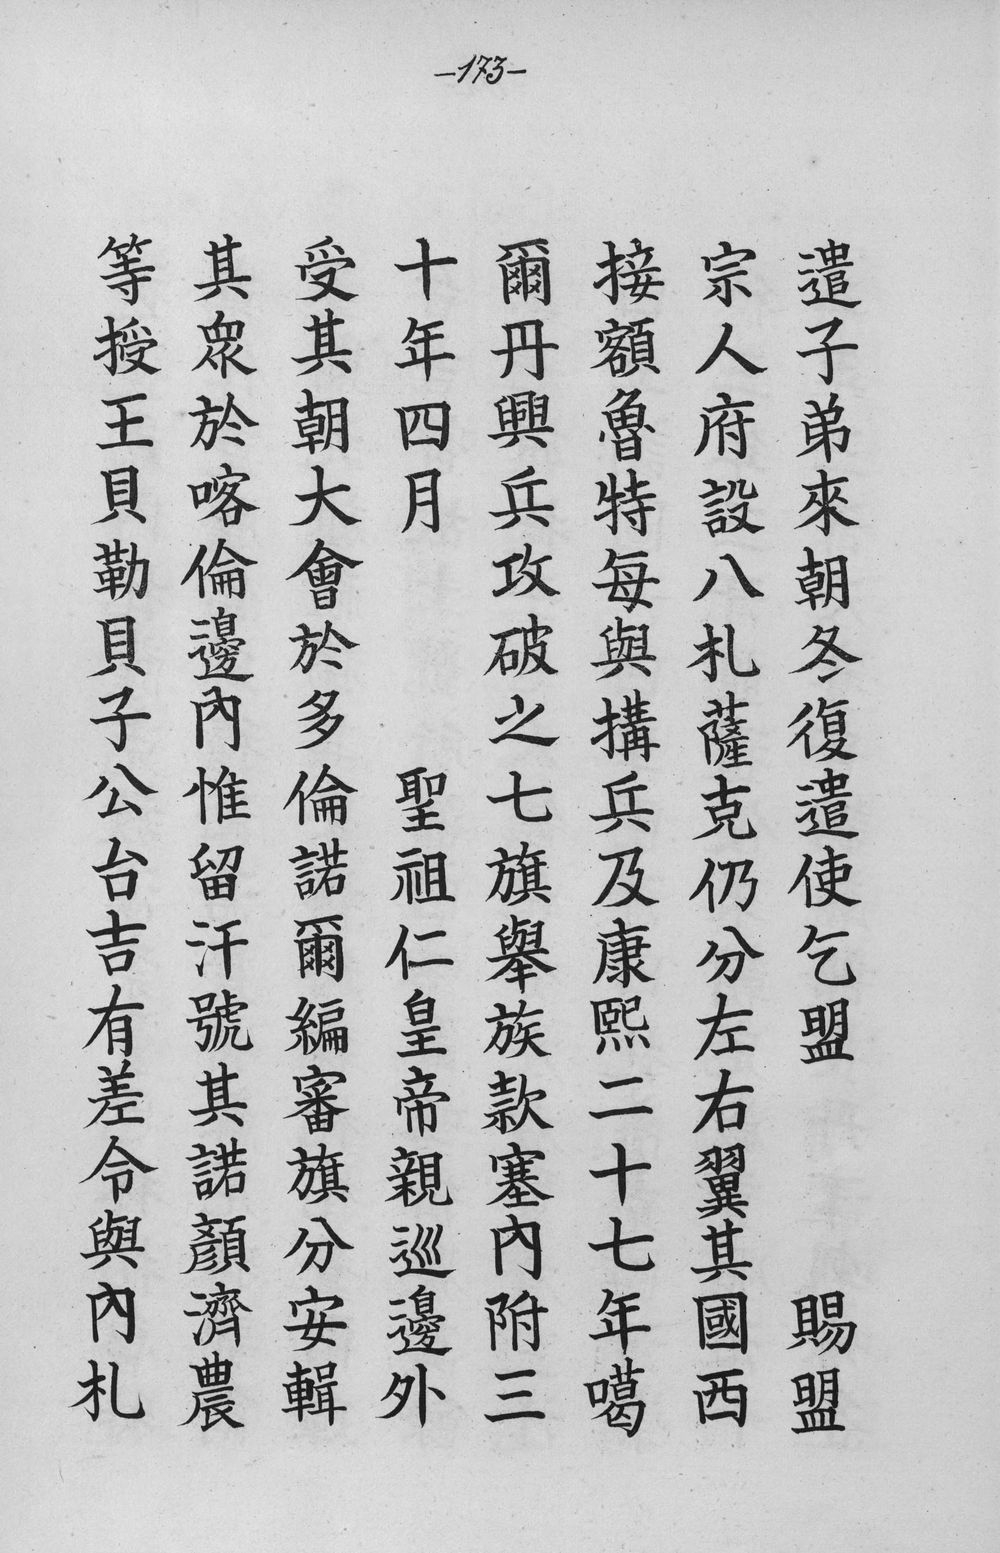 –173–
遣子弟來朝冬復遣使乞盟　賜盟
宗人府設八札薩克仍分左右翼其國西
接額魯特每與搆兵及康熙二十七年噶
爾丹興兵攻破之七旗舉族款塞內附三
十年四月　聖祖仁皇帝親巡邊外
受其朝大會於多倫諾爾編審旗分安輯
其眾於喀倫邊內惟留汗號其諾顏濟農
等授王貝勒貝子公台吉有差令與內札